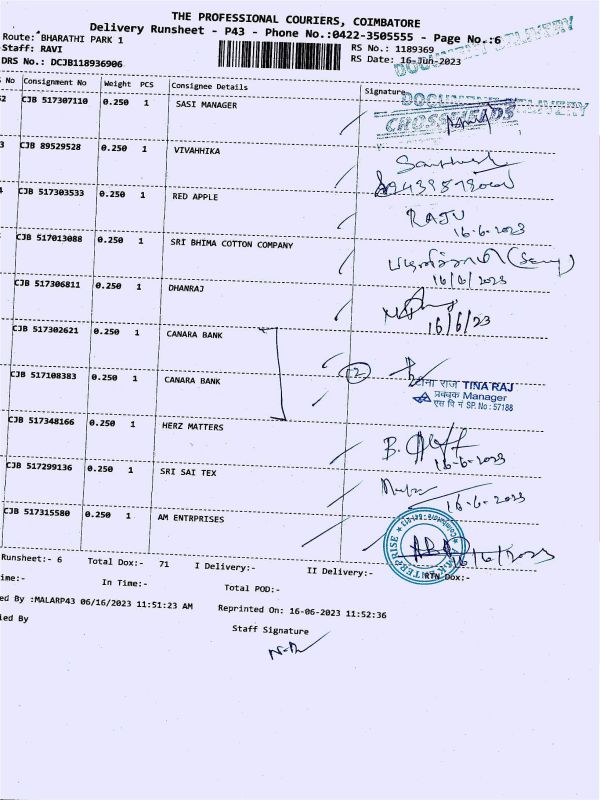 THE PROFESSIONAL COURIERS, COIMBATORE
Delivery Runsheet - P43 - Phone No.:0422-3505555 - Page No.:6
Route: BHARATHI PARK 1
RS No.: 1189369
Staff: RAVI
RS Date: 16-Jun-2023
DRS No.: DCJB118936906
DOCUMENT DELIVERY
No Consignment No Weight PCS Consignee Details Signature
DOCUMENT DELIVERY
CROSSROADS
2 CJB 517307110 0.250 1 SASI MANAGER
3 CJB 89529528 0.250 1 VIVAHHIKA
CJB 517303533 0.250 1 RED APPLE RAJU
16-6-2023
CJB 517013088 0.250 1 SRI BHIMA COTTON COMPANY
16/6/2023
CJB 517306811 0.250 1 DHANRAJ
16/6/23
CJB 517302621 0.250 1 CANARA BANK
2
CJB 517108383 0.250 1 CANARA BANK
टीना राज TINA RAJ
प्रबंधक Manager
एस पि नं SP. No : 57188
CJB 517348166 0.250 1 HERZ MATTERS
16-6-2023
CJB 517299136 0.250 1 SRI SAI TEX
16-6-2023
CJB 517315580 0.250 1 AM ENTRPRISES
16/6/2023
Runsheet:- 6 Total Dox:- 71 I Delivery:- II Delivery:- RTN Dox:-
ime:- In Time:- Total POD:-
ed By :MALARP43 06/16/2023 11:51:23 AM Reprinted On: 16-06-2023 11:52:36
led By
Staff Signature